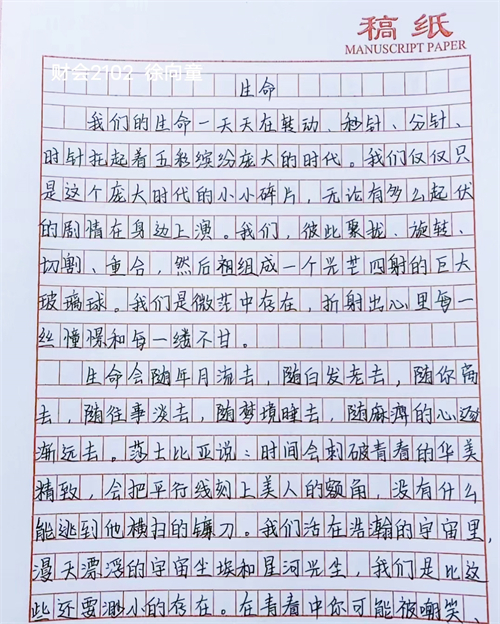 稿纸
MANUSCRIPT PAPER
财会2102 徐向童
生命
我们的生命一天天在转动、秒针、分针、
时针托起着五彩缤纷庞大的时代。我们仅仅只
是这个庞大时代的小小碎片，无论有多么起伏
的剧情在身边上演。我们，彼此聚拢、旋转、
切割、重合，然后相组成一个光芒四射的巨大
玻璃球。我们是微茫中存在，折射出心里每一
丝憧憬和每一缕不甘。
生命会随年月流去，随白发老去，随你离
去，随往事淡去，随梦境睡去，随麻痹的心逐
渐远去。莎士比亚说：时间会刺破青春的华美
精致，会把平行线刻上美人的额角，没有什么
能逃到他横扫的镰刀。我们活在浩瀚的宇宙里，
漫天漂浮的宇宙尘埃和星河光生，我们是比这
些还要渺小的存在。在青春中你可能被嘲笑、